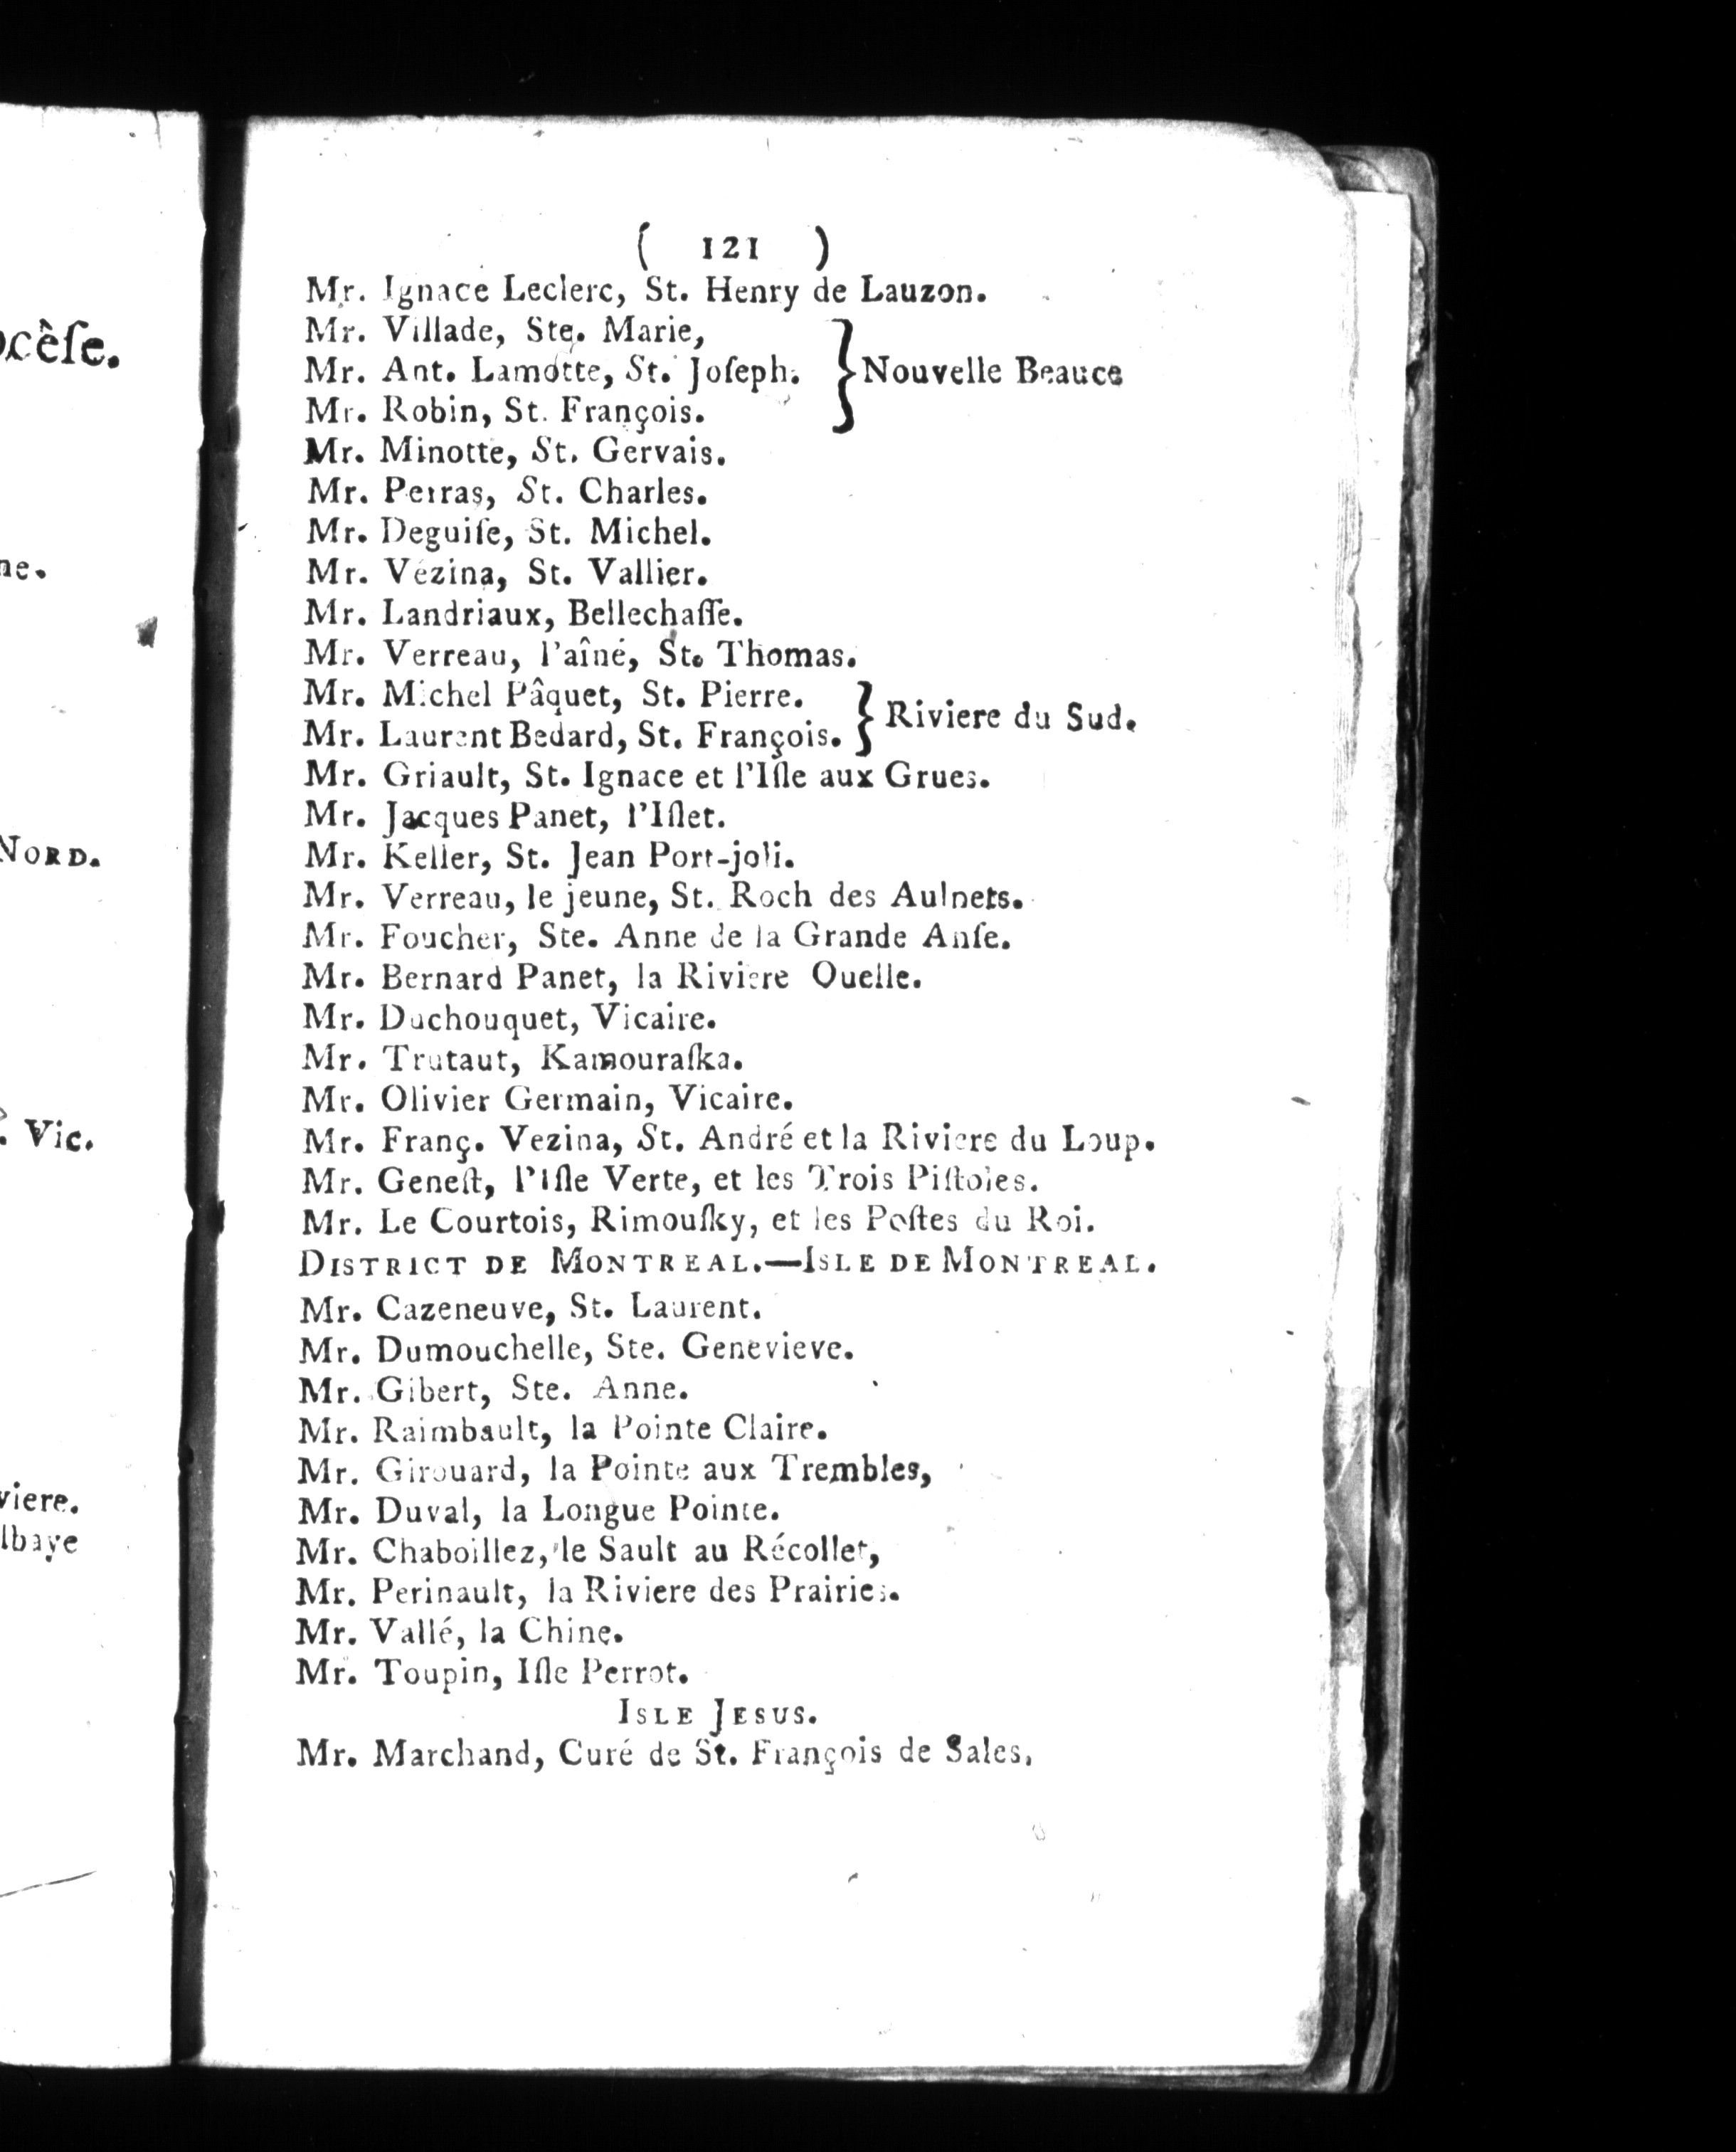 ocèſe.
ne.
NORD.
. Vic.
viere.
lbaye
( 121 )
Mr. Ignace Leclerc, St. Henry de Lauzon.
Mr. Villade, Ste. Marie,
Mr. Ant. Lamotte, St. Joſeph. } Nouvelle Beauce
Mr. Robin, St. François.
Mr. Minotte, St. Gervais.
Mr. Perras, St. Charles.
Mr. Deguiſe, St. Michel.
Mr. Vézina, St. Vallier.
Mr. Landriaux, Bellechaſſe.
Mr. Verreau, l'aîné, St. Thomas.
Mr. Michel Pâquet, St. Pierre. } Riviere du Sud.
Mr. Laurent Bedard, St. François.
Mr. Griault, St. Ignace et l'Iſle aux Grues.
Mr. Jacques Panet, l'Iſlet.
Mr. Keller, St. Jean Port-joli.
Mr. Verreau, le jeune, St. Roch des Aulnets.
Mr. Foucher, Ste. Anne de la Grande Anſe.
Mr. Bernard Panet, la Riviere Ouelle.
Mr. Duchouquet, Vicaire.
Mr. Trutaut, Kamouraſka.
Mr. Olivier Germain, Vicaire.
Mr. Franç. Vezina, St. André et la Riviere du Loup.
Mr. Geneſt, l'Iſle Verte, et les Trois Piſtoles.
Mr. Le Courtois, Rimouſky, et les Poſtes du Roi.
DISTRICT DE MONTREAL.—ISLE DE MONTREAL.
Mr. Cazeneuve, St. Laurent.
Mr. Dumouchelle, Ste. Genevieve.
Mr. Gibert, Ste. Anne.
Mr. Raimbault, la Pointe Claire.
Mr. Girouard, la Pointe aux Trembles,
Mr. Duval, la Longue Pointe.
Mr. Chaboillez, le Sault au Récollet,
Mr. Perinault, la Riviere des Prairies.
Mr. Vallé, la Chine.
Mr. Toupin, Iſle Perrot.
ISLE JESUS.
Mr. Marchand, Curé de St. François de Sales,